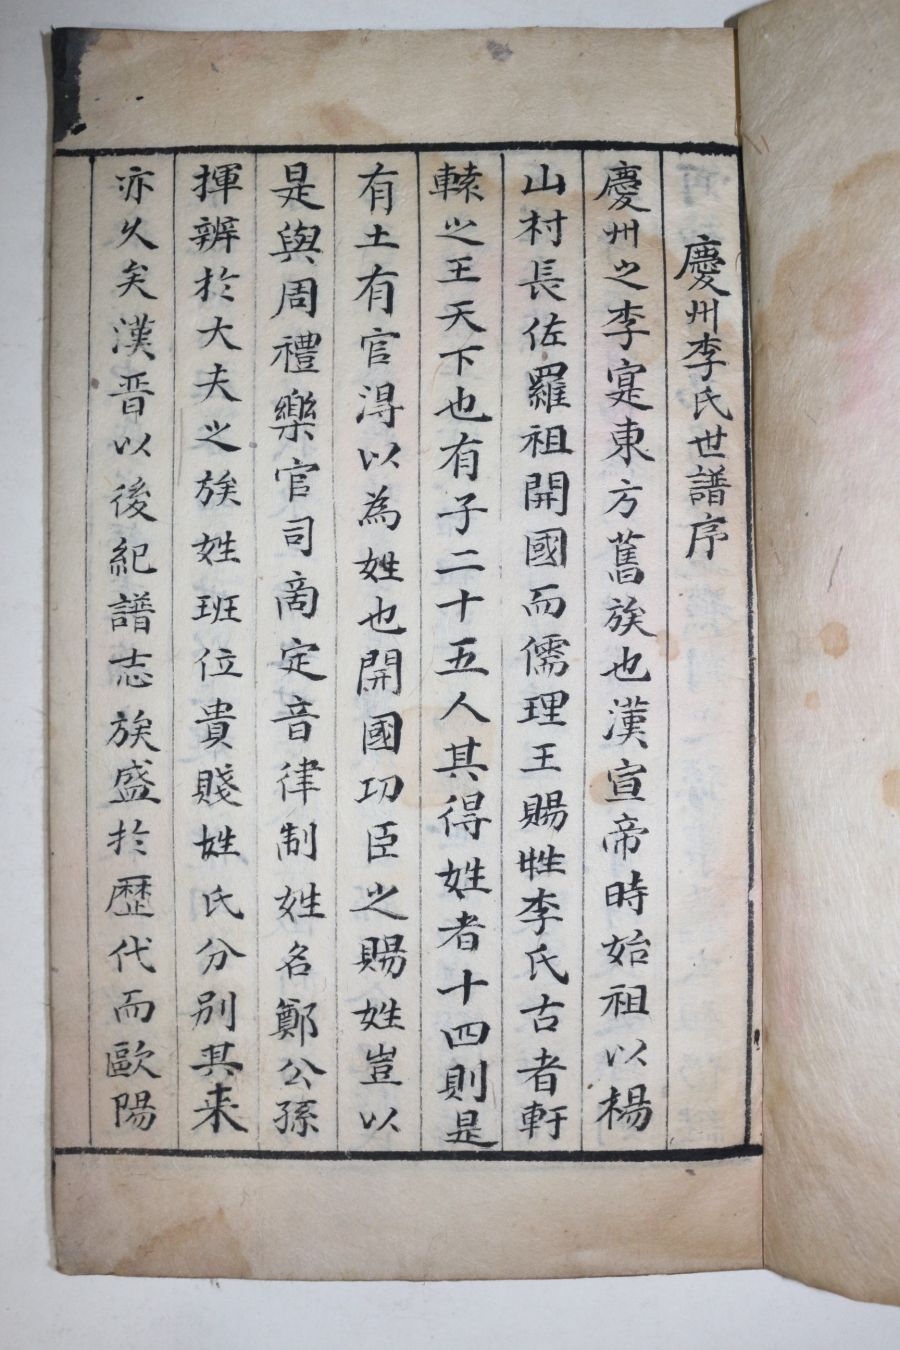 慶州李氏世譜序
慶州之李寔東方舊族也漢宣帝時始祖以楊
山村長佐羅祖開國而儒理王賜姓李氏古者軒
轅之王天下也有子二十五人其得姓者十四則是
有土有官淂以為姓也開國功臣之賜姓豈以
是與周禮樂官司啇定音律制姓名鄭公孫
揮辨扵大夫之族姓班位貴賤姓氏分别其来
亦久矣漢晋以後紀譜志族盛扵歷代而歐陽